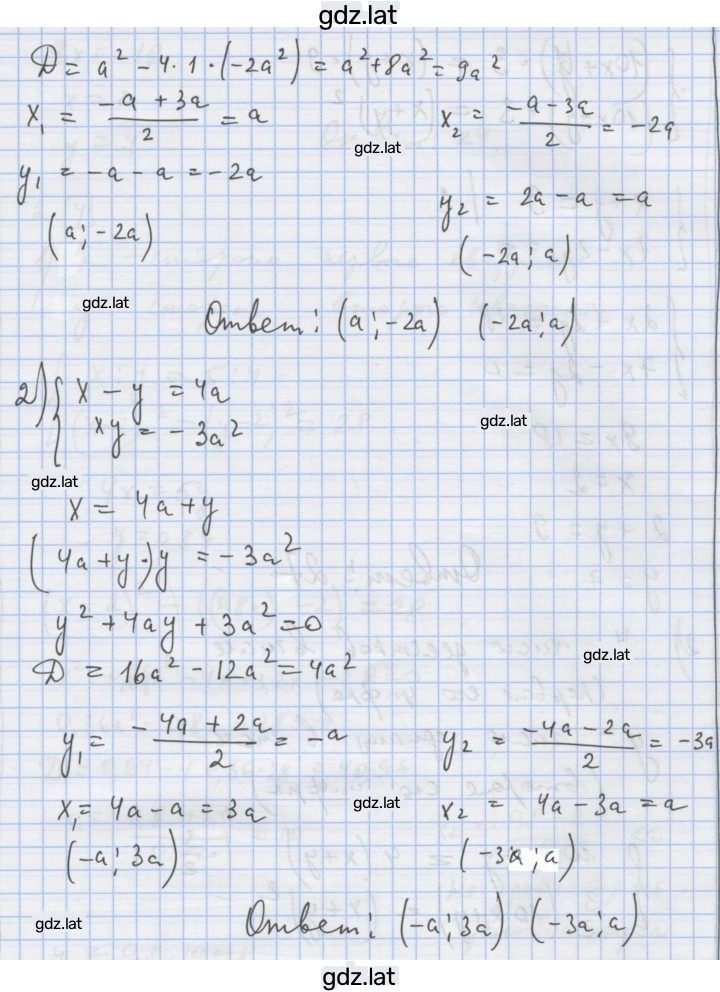 gdz.lat
D = a² - 4·1·(-2a²) = a² + 8a² = 9a²
x₁ = (-a + 3a)/2 = a
x₂ = (-a - 3a)/2 = -2a
gdz.lat
y₁ = -a - a = -2a
y₂ = 2a - a = a
(a; -2a)
(-2a; a)
gdz.lat
Ответ: (a; -2a) (-2a; a)
2) { x - y = 4a
xy = -3a²
gdz.lat
gdz.lat
x = 4a + y
(4a + y)·y = -3a²
y² + 4ay + 3a² = 0
gdz.lat
D = 16a² - 12a² = 4a²
y₁ = (-4a + 2a)/2 = -a
y₂ = (-4a - 2a)/2 = -3a
x₁ = 4a - a = 3a
gdz.lat
x₂ = 4a - 3a = a
(-a; 3a)
(-3a; a)
gdz.lat
Ответ: (-a; 3a) (-3a; a)
gdz.lat